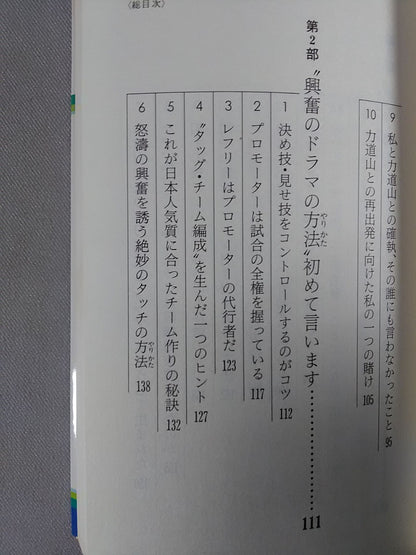 〈総目次〉
9 私と力道山との確執、その誰にも言わなかったこと 95
10 力道山との再出発に向けた私の一つの賭け 105
第2部 “興奮のドラマの方法(やりかた)”初めて言います…………………… 111
1 決め技・見せ技をコントロールするのがコツ 112
2 プロモーターは試合の全権を握っている 117
3 レフリーはプロモーターの代行者だ 123
4 “タッグ・チーム編成”を生んだ一つのヒント 127
5 これが日本人気質に合ったチーム作りの秘訣 132
6 怒濤の興奮を誘う絶妙のタッチの方法(やりかた) 138